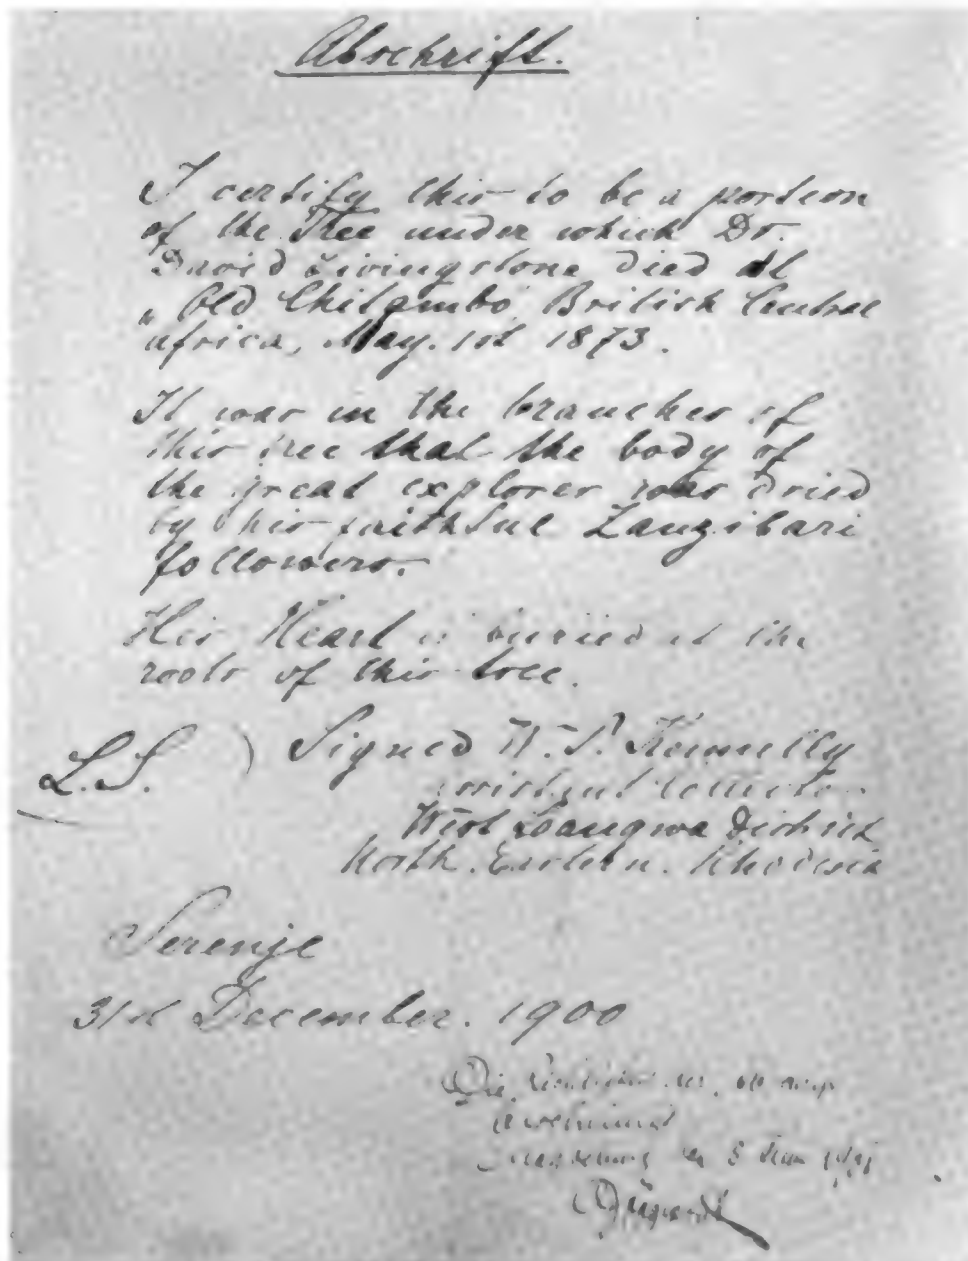 Abschrift.
I certify this to be a portion
of the Tree under which Dr.
David Livingstone died at
"Old Chilambo", British Central
Africa, May. 1st 1873.
It was in the branches of
this tree that the body of
the great explorer was dried
by his faithful Zanzibari
followers.
His Heart is buried at the
roots of this tree.
L.S. ) Signed
West Loangwa District
North. Eastern. Rhodesia
Serenje
31st December. 1900
Die